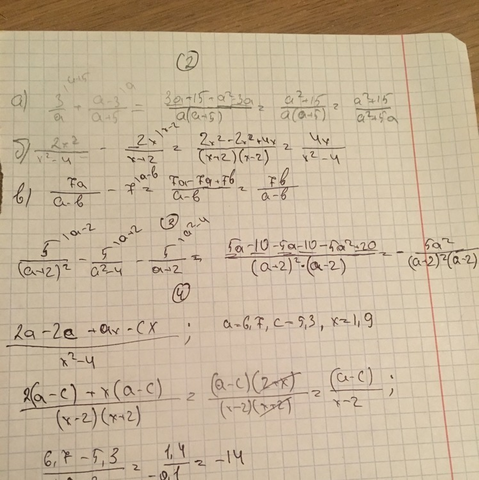 ②
а) 3/a |a+5 + a-3/a+5 |a = 3a+15-a²-3a/a(a+5) = a²+15/a(a+5) = a²+15/a²+5a
б) 2x²/x²-4 - 2x/x+2 |x-2 = 2x²-2x²+4x/(x+2)(x-2) = 4x/x²-4
в) 7a/a-b - 7 |a-b = 7a-7a+7b/a-b = 7b/a-b
③
5/(a+2)² |a-2 - 5/a²-4 |a+2 - 5/a+2 |a²-4 = 5a-10-5a-10-5a²+20/(a+2)²·(a-2) = - 5a²/(a+2)²(a-2)
④
2a-2c+ax-cx/x²-4 ; a=6,7, c=5,3, x=1,9
2(a-c)+x(a-c)/(x-2)(x+2) = (a-c)(2+x)/(x-2)(x+2) = (a-c)/x-2 ;
6,7-5,3 = 1,4/-0,1 = -14